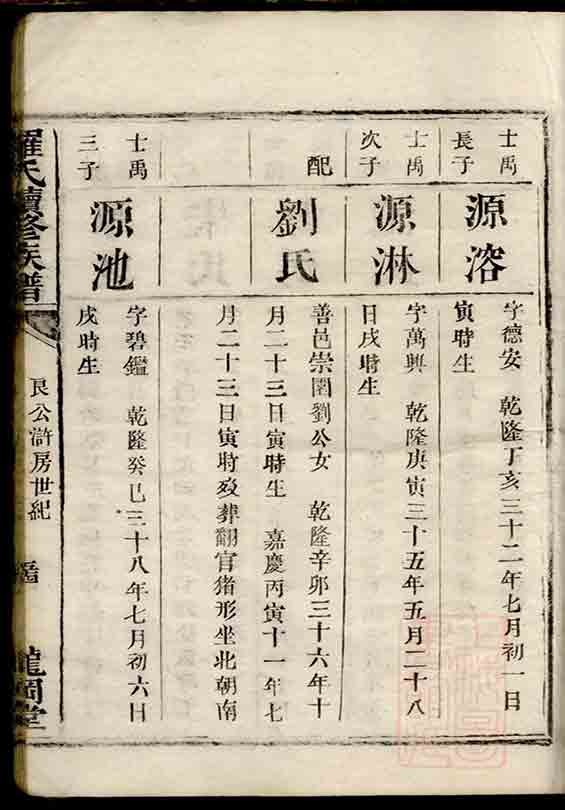 士禹
長子
源溶
字德安 乾隆丁亥三十二年七月初一日
寅時生
士禹
次子
源淋
字萬興 乾隆庚寅三十五年五月二十八
日戌時生
配
劉氏
善邑崇園劉公女 乾隆辛卯三十六年十
月二十三日寅時生 嘉慶丙寅十一年七
月二十三日寅時歿葬翻官猪形坐北朝南
士禹
三子
源池
字碧鑑 乾隆癸巳三十八年七月初六日
戌時生
羅氏續修族譜
艮公滸房世紀
龍岡堂